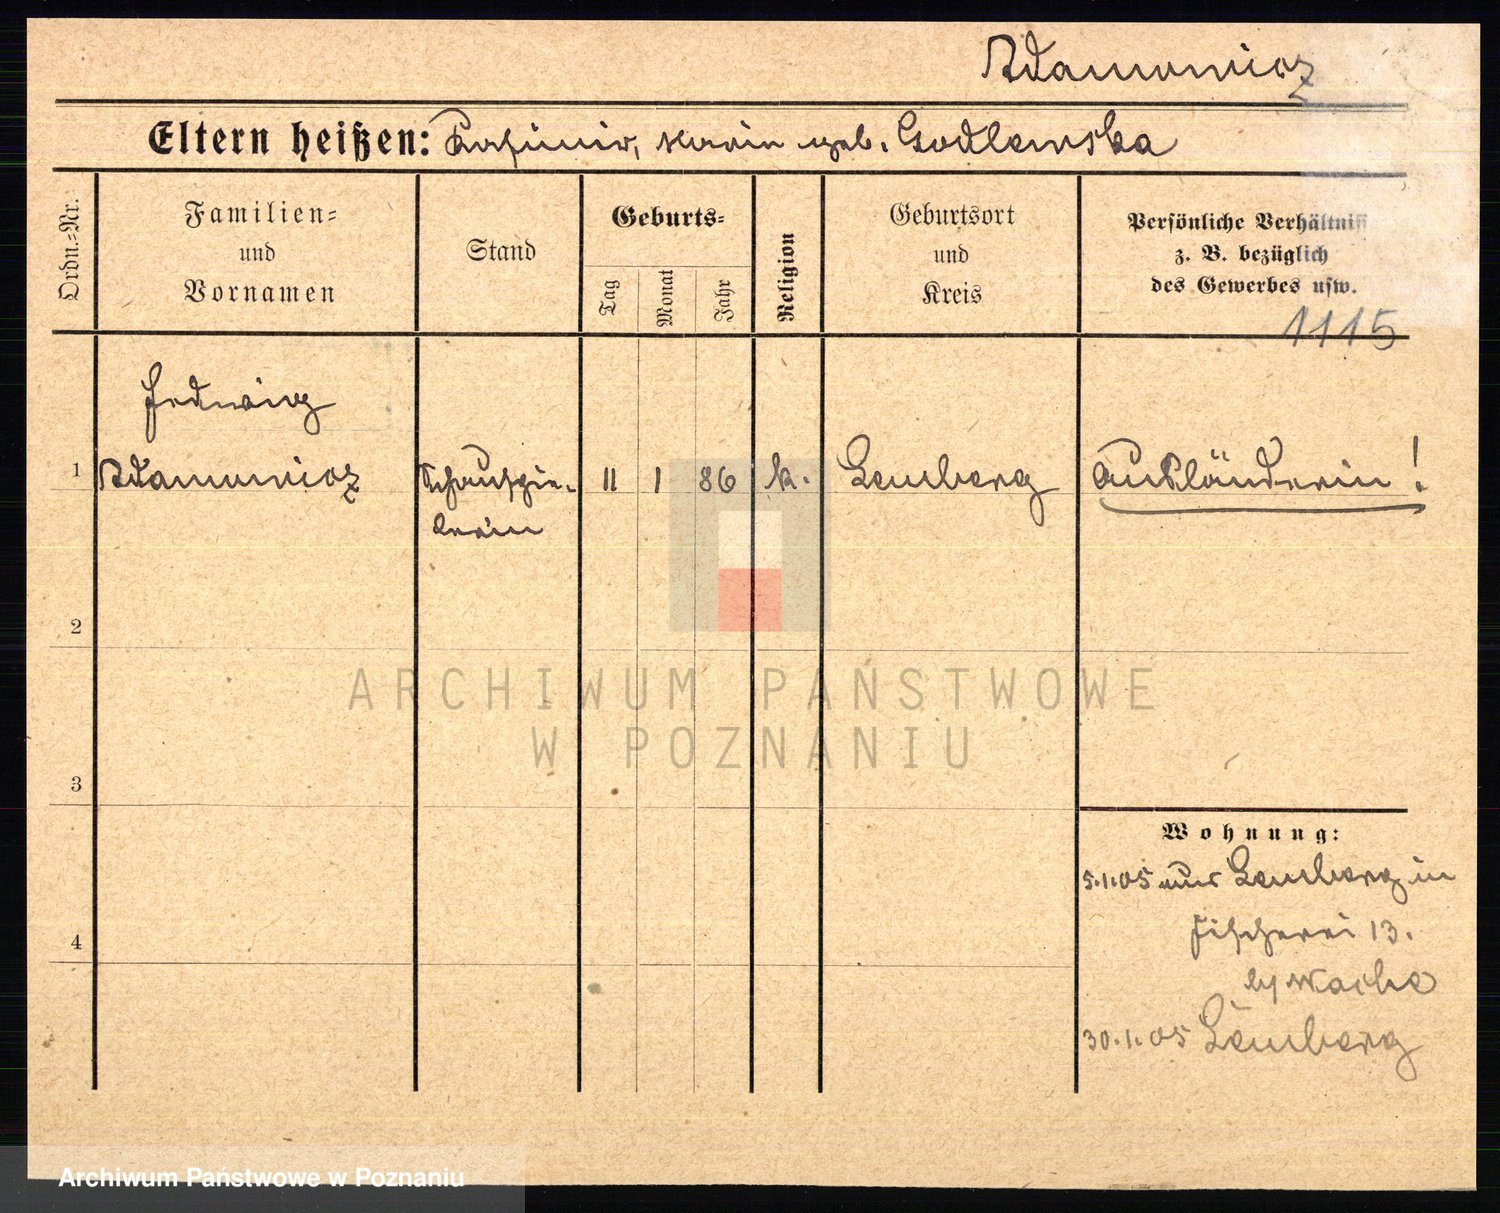 Adamowicz
Eltern heißen: Kasimir, Marie geb. Godlewska
Ordn.-Nr.
Familien-
und
Vornamen
Stand
Geburts-
Tag
Monat
Jahr
Religion
Geburtsort
und
Kreis
Persönliche Verhältnisse
z. B. bezüglich
des Gewerbes usw.
1115
Hedwig
1 Adamowicz Schauspie- 11 1 86 k. Lemberg Ausländerin!
lerin
2
3
4
ARCHIWUM PAŃSTWOWE
W POZNANIU
Wohnung:
5.1.05 aus Lemberg in
Fischerei 13.
Wache
30.1.05 Lemberg
Archiwum Państwowe w Poznaniu